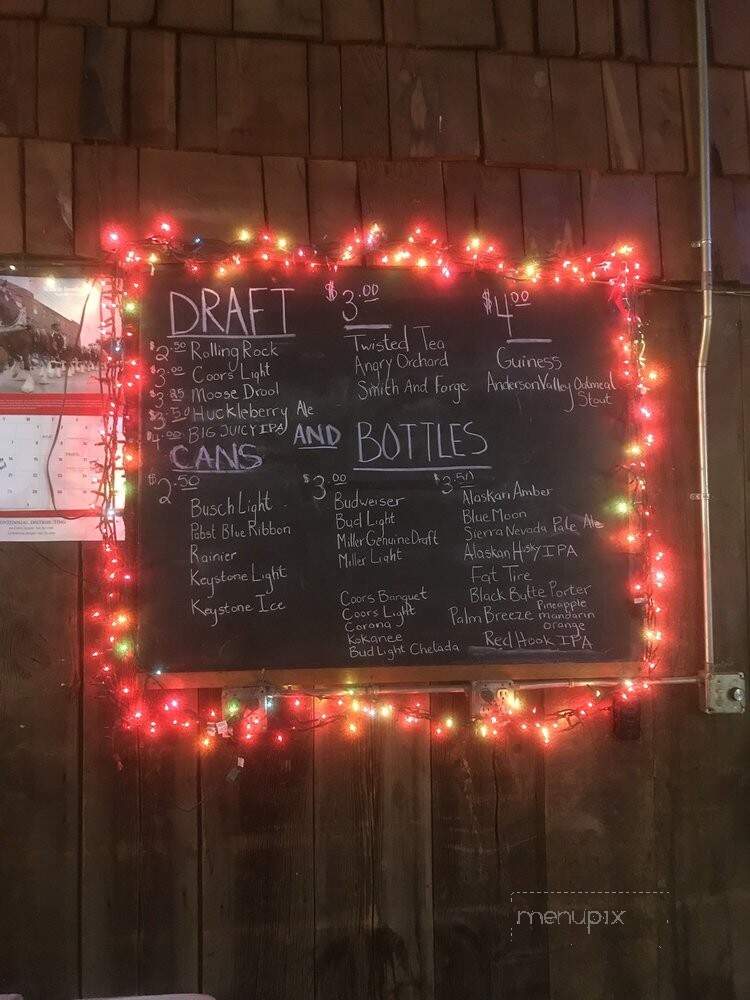 DRAFT
$2.50 Rolling Rock
$3.00 Coors Light
$3.25 Moose Drool
$3.50 Huckleberry Ale
$4.00 BIG JUICY IPA
$3.00
Twisted Tea
Angry Orchard
Smith And Forge
$4.00
Guiness
Anderson Valley Oatmeal
Stout
CANS AND BOTTLES
$2.50
Busch Light
Pabst Blue Ribbon
Rainier
Keystone Light
Keystone Ice
$3.00
Budweiser
Bud Light
Miller Genuine Draft
Miller Light
Coors Banquet
Coors Light
Corona
Kokanee
Bud Light Chelada
$3.50
Alaskan Amber
Blue Moon
Sierra Nevada Pale Ale
Alaskan Husky IPA
Fat Tire
Black Butte Porter
Palm Breeze Pineapple
mandarin
orange
Red Hook IPA
menupix